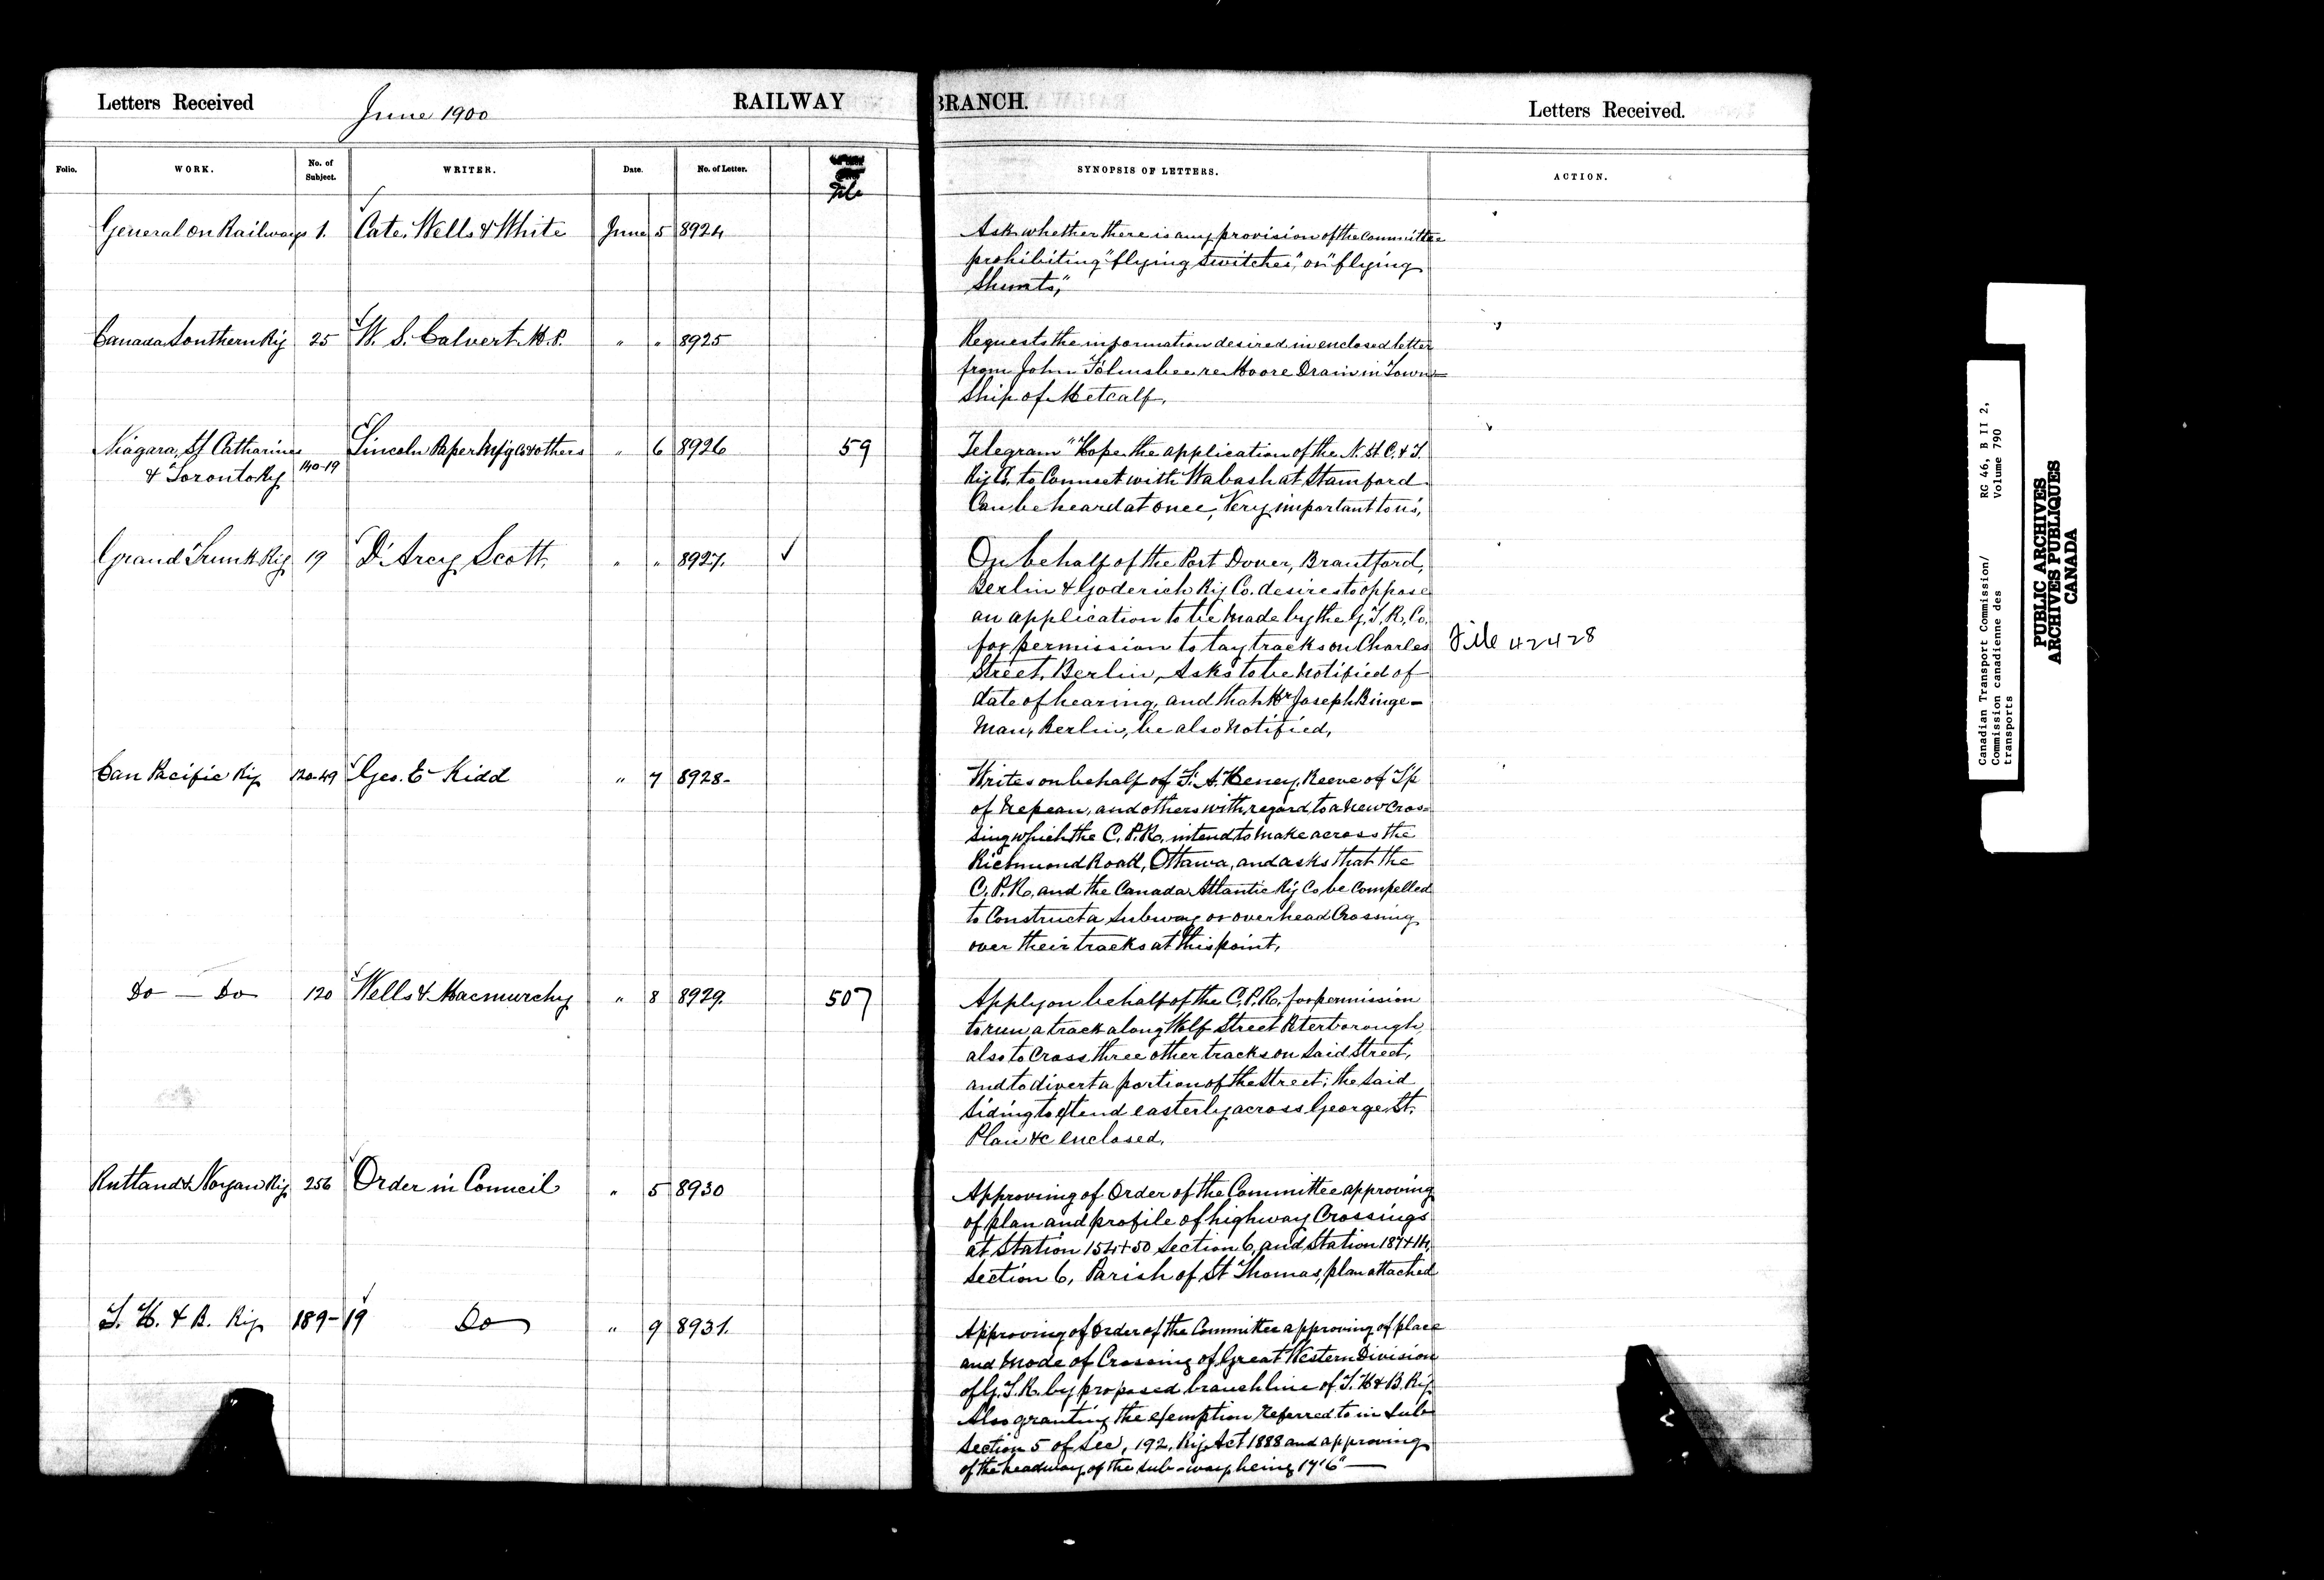 Letters Received June 1900 RAILWAY BRANCH. Letters Received.
Folio. WORK. No. of Subject. WRITER. Date. No. of Letter. File SYNOPSIS OF LETTERS. ACTION.
General on Railways 1. Cate, Wells & White June 5 8924
Ask whether there is any provision of the Committee
prohibiting "flying switches", or "flying
shunts,"
Canada Southern Ry 25 W. S. Calvert M.P. " " 8925
Requests the information desired in enclosed letter
from John re Moore Drain in Town-
ship of Metcalf,
Niagara, St Catharines
& Toronto Ry 140-19 Lincoln Paper Mfg Co & others " 6 8926 59
Telegram "Hope the application of the N. St C. & T.
Ry Co, to Connect with Wabash at Stamford
Can be heard at once, Very important to us,
Grand Trunk Ry 19 D'Arcy Scott, " " 8927. ✓
On behalf of the Port Dover, Brantford,
Berlin & Goderich Ry Co. desires to oppose
an application to be made by the G.T.R. Co.
for permission to lay tracks on Charles File 42428
Street, Berlin, Asks to be notified of
date of hearing, and that Mr Joseph Binge-
man, Berlin, be also notified,
Can Pacific Ry 120-49 Geo. E Kidd " 7 8928-
Writes on behalf of F. A. Heney, Reeve of Tp
of Nepean, and others with regard to a new Cros-
sing which the C.P.R. intend to make across the
Richmond Road, Ottawa, and asks that the
C.P.R. and the Canada Atlantic Ry Co be Compelled
to Construct a subway or overhead Crossing
over their tracks at this point,
Do — Do 120 Wells & Macmurchy " 8 8929. 507
Apply on behalf of the C.P.R. for permission
to run a track along Wolf Street Peterborough,
also to Cross three other tracks on said Street,
and to divert a portion of the Street; the said
siding to extend easterly across George St.
Plan &c enclosed,
Rutland & Noyan Ry 256 Order in Council " 5 8930
Approving of Order of the Committee approving
of plan and profile of highway Crossings
at Station 154+50 Section 6, and Station 187+14,
Section 6, Parish of St Thomas, plan attached
T. H. & B. Ry 189-19 Do " 9 8931.
Approving of Order of the Committee approving of place
and mode of Crossing of Great Western Division
of G.T.R. by proposed branch line of T.H & B. Ry.
Also granting the exemption referred to in sub
section 5 of Sec, 192, Ry. Act 1888 and approving
of the headway of the sub-way being 17'6" —
Canadian Transport Commission/ RG 46, B II 2,
Commission canadienne des Volume 790
transports
PUBLIC ARCHIVES
ARCHIVES PUBLIQUES
CANADA